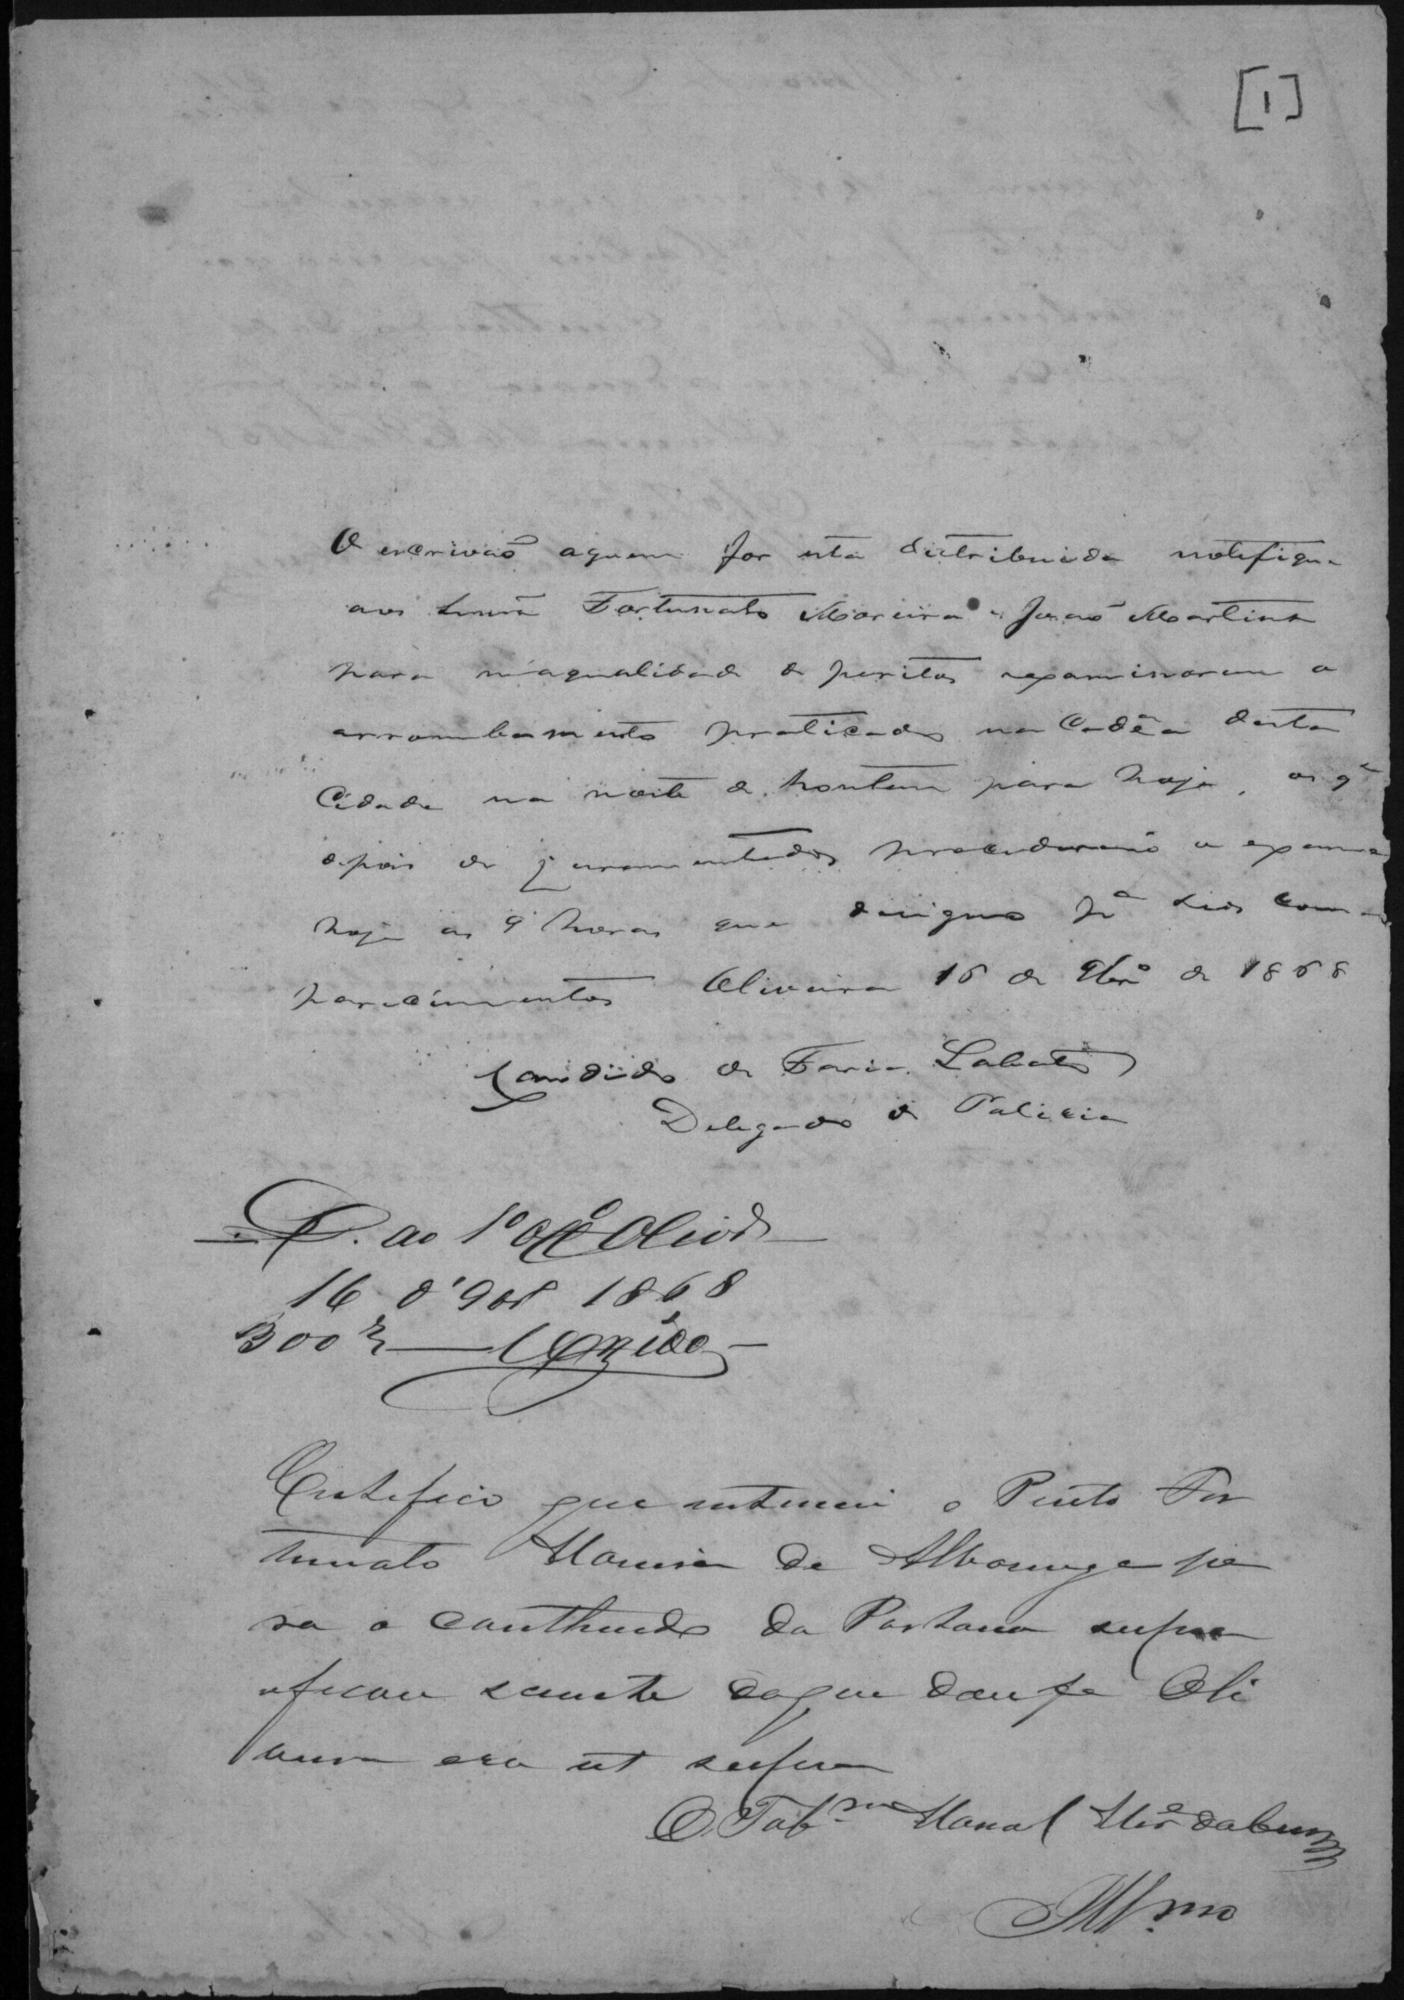 [1]
O escrivaõ aquem for esta distribuida notifique
aos Fortunato Moreira e Joaõ Martins
para naqualidade de peritos examinarem o
arrombamento praticado na Cadêa desta
Cidade na noite de hontem para hoje, os qe
depois de juramentados procederaõ a exame
hoje as 9 horas que designo pa seos com
parecimentos Oliveira 16 de 9bro de 1868
Candido de Faria Lobato
Delegado de Policia
D. ao 1o Offo Olivra
16 d' 9br 1868
300 rs
Certifico que entimei o Perito For
tunato Moreira de Alvarenga pa
ra o conthudo da Portaria supra
eficou sciente doque dou fe Oli
veira era ut supra
O Tabam Manoel
Illmo